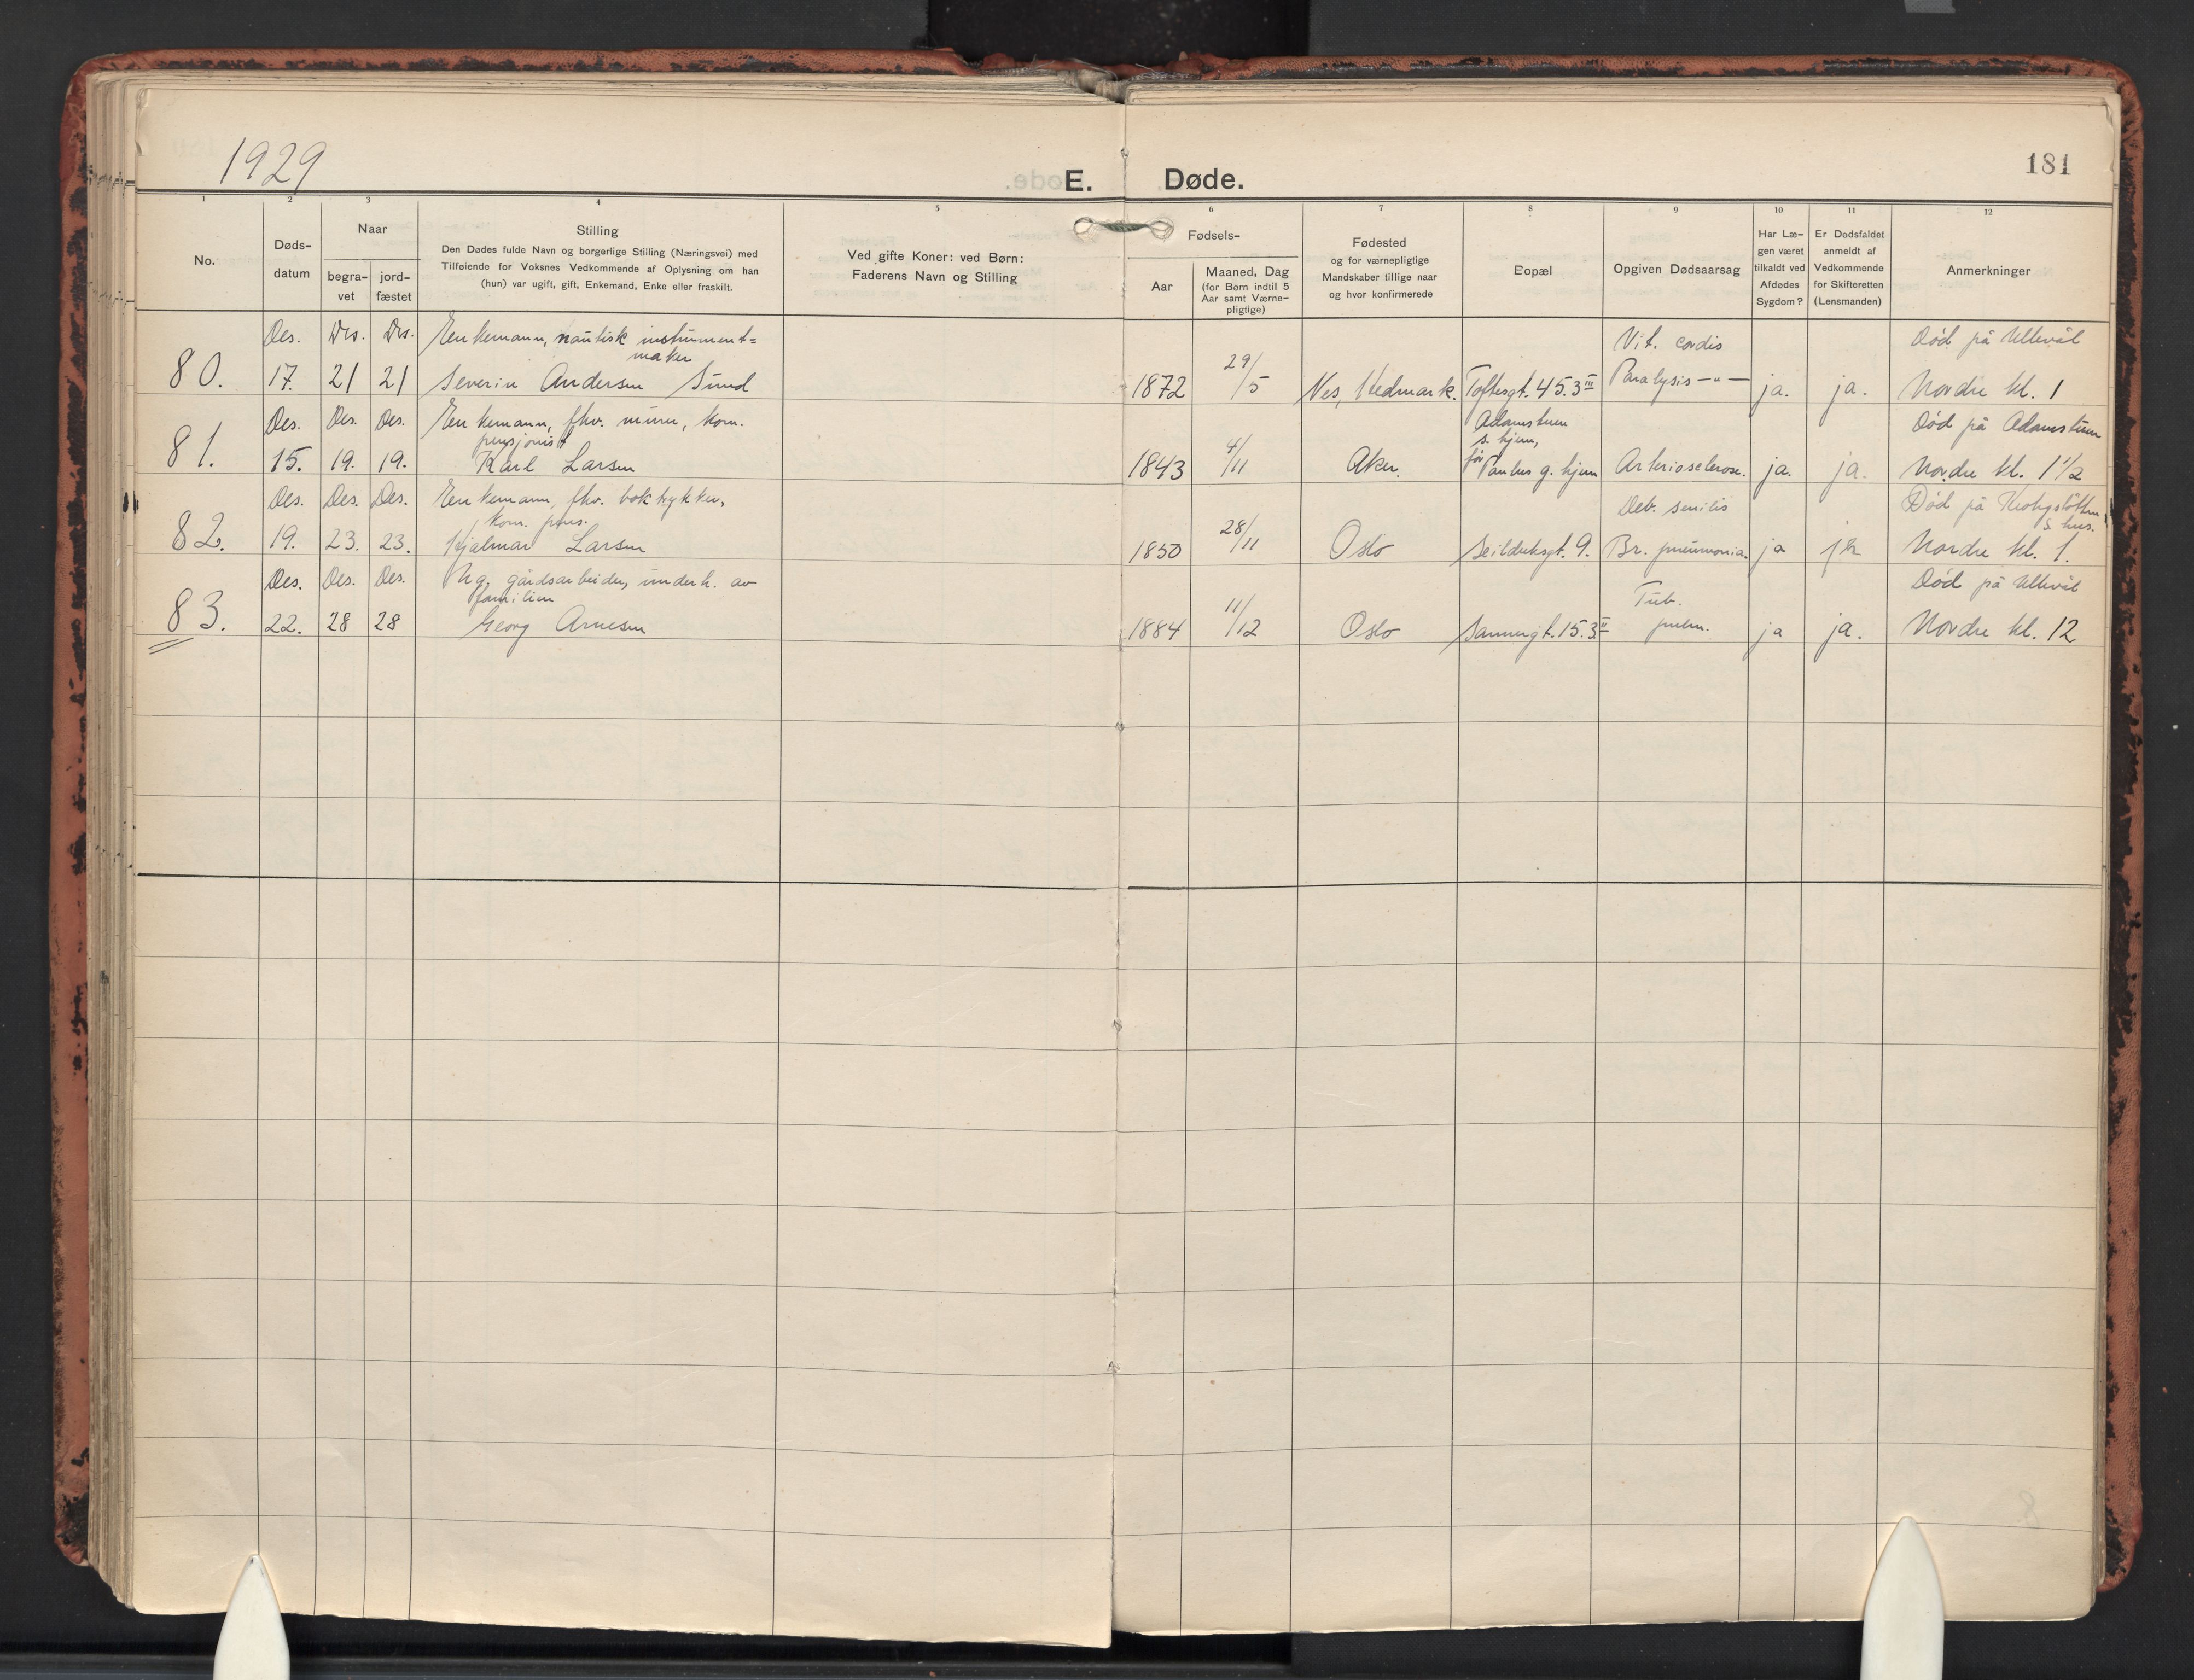 1929
E. Døde.
181
1 2 3 4 5 6 7 8 9 10 11 12
No.
Døds-
datum
Naar
begra-
vet
jord-
fæstet
Stilling
Den Dødes fulde Navn og borgerlige Stilling (Næringsvei) med
Tilføiende for Voksnes Vedkommende af Oplysning om han
(hun) var ugift, gift, Enkemand, Enke eller fraskilt.
Ved gifte Koner: ved Børn:
Faderens Navn og Stilling
Fødsels-
Aar
Maaned, Dag
(for Børn indtil 5
Aar samt Værne-
pligtige)
Fødested
og for værnepligtige
Mandskaber tillige naar
og hvor konfirmerede
Bopæl
Opgiven Dødsaarsag
Har Læ-
gen været
tilkaldt ved
Afdødes
Sygdom?
Er Dødsfaldet
anmeldt af
Vedkommende
for Skifteretten
(Lensmanden)
Anmerkninger
Des. Des. Des. Enkemann, nautisk instrument-
maker
Vit. cordis
Død på Ullevål
80. 17. 21 21 Severin Andersen Sund 1872 29/5 Nes, Hedmark. Toftesgt. 45.3 III Paralysis -"- ja. ja. Nordre kl. 1
Des. Des. Des. Enkemann, fhv. murer, kom.
pensjonist
Adamstuen
s. hjem,
før
Død på Adamstuen
81. 15. 19. 19. Karl Larsen 1843 4/11 Aker. Paulus g. hjem Arteriosclerose. ja. ja. Nordre kl. 1 1/2
Des. Des. Des. Enkemann, fhv. boktrykker,
kom. pens.
Deb. senilis
Død på
s. hus.
82. 19. 23. 23. Hjalmar Larsen 1850 28/11 Oslo Seilduksgt. 9. Br. pneumonia. ja ja Nordre kl. 1.
Des. Des. Des. Ug. gårdsarbeider, underh. av
familien
Tub.
Død på Ullevål
83. 22. 28 28 Georg Arnesen 1884 11/12 Oslo Sannergt. 15.3 II pulm. ja ja. Nordre kl. 12